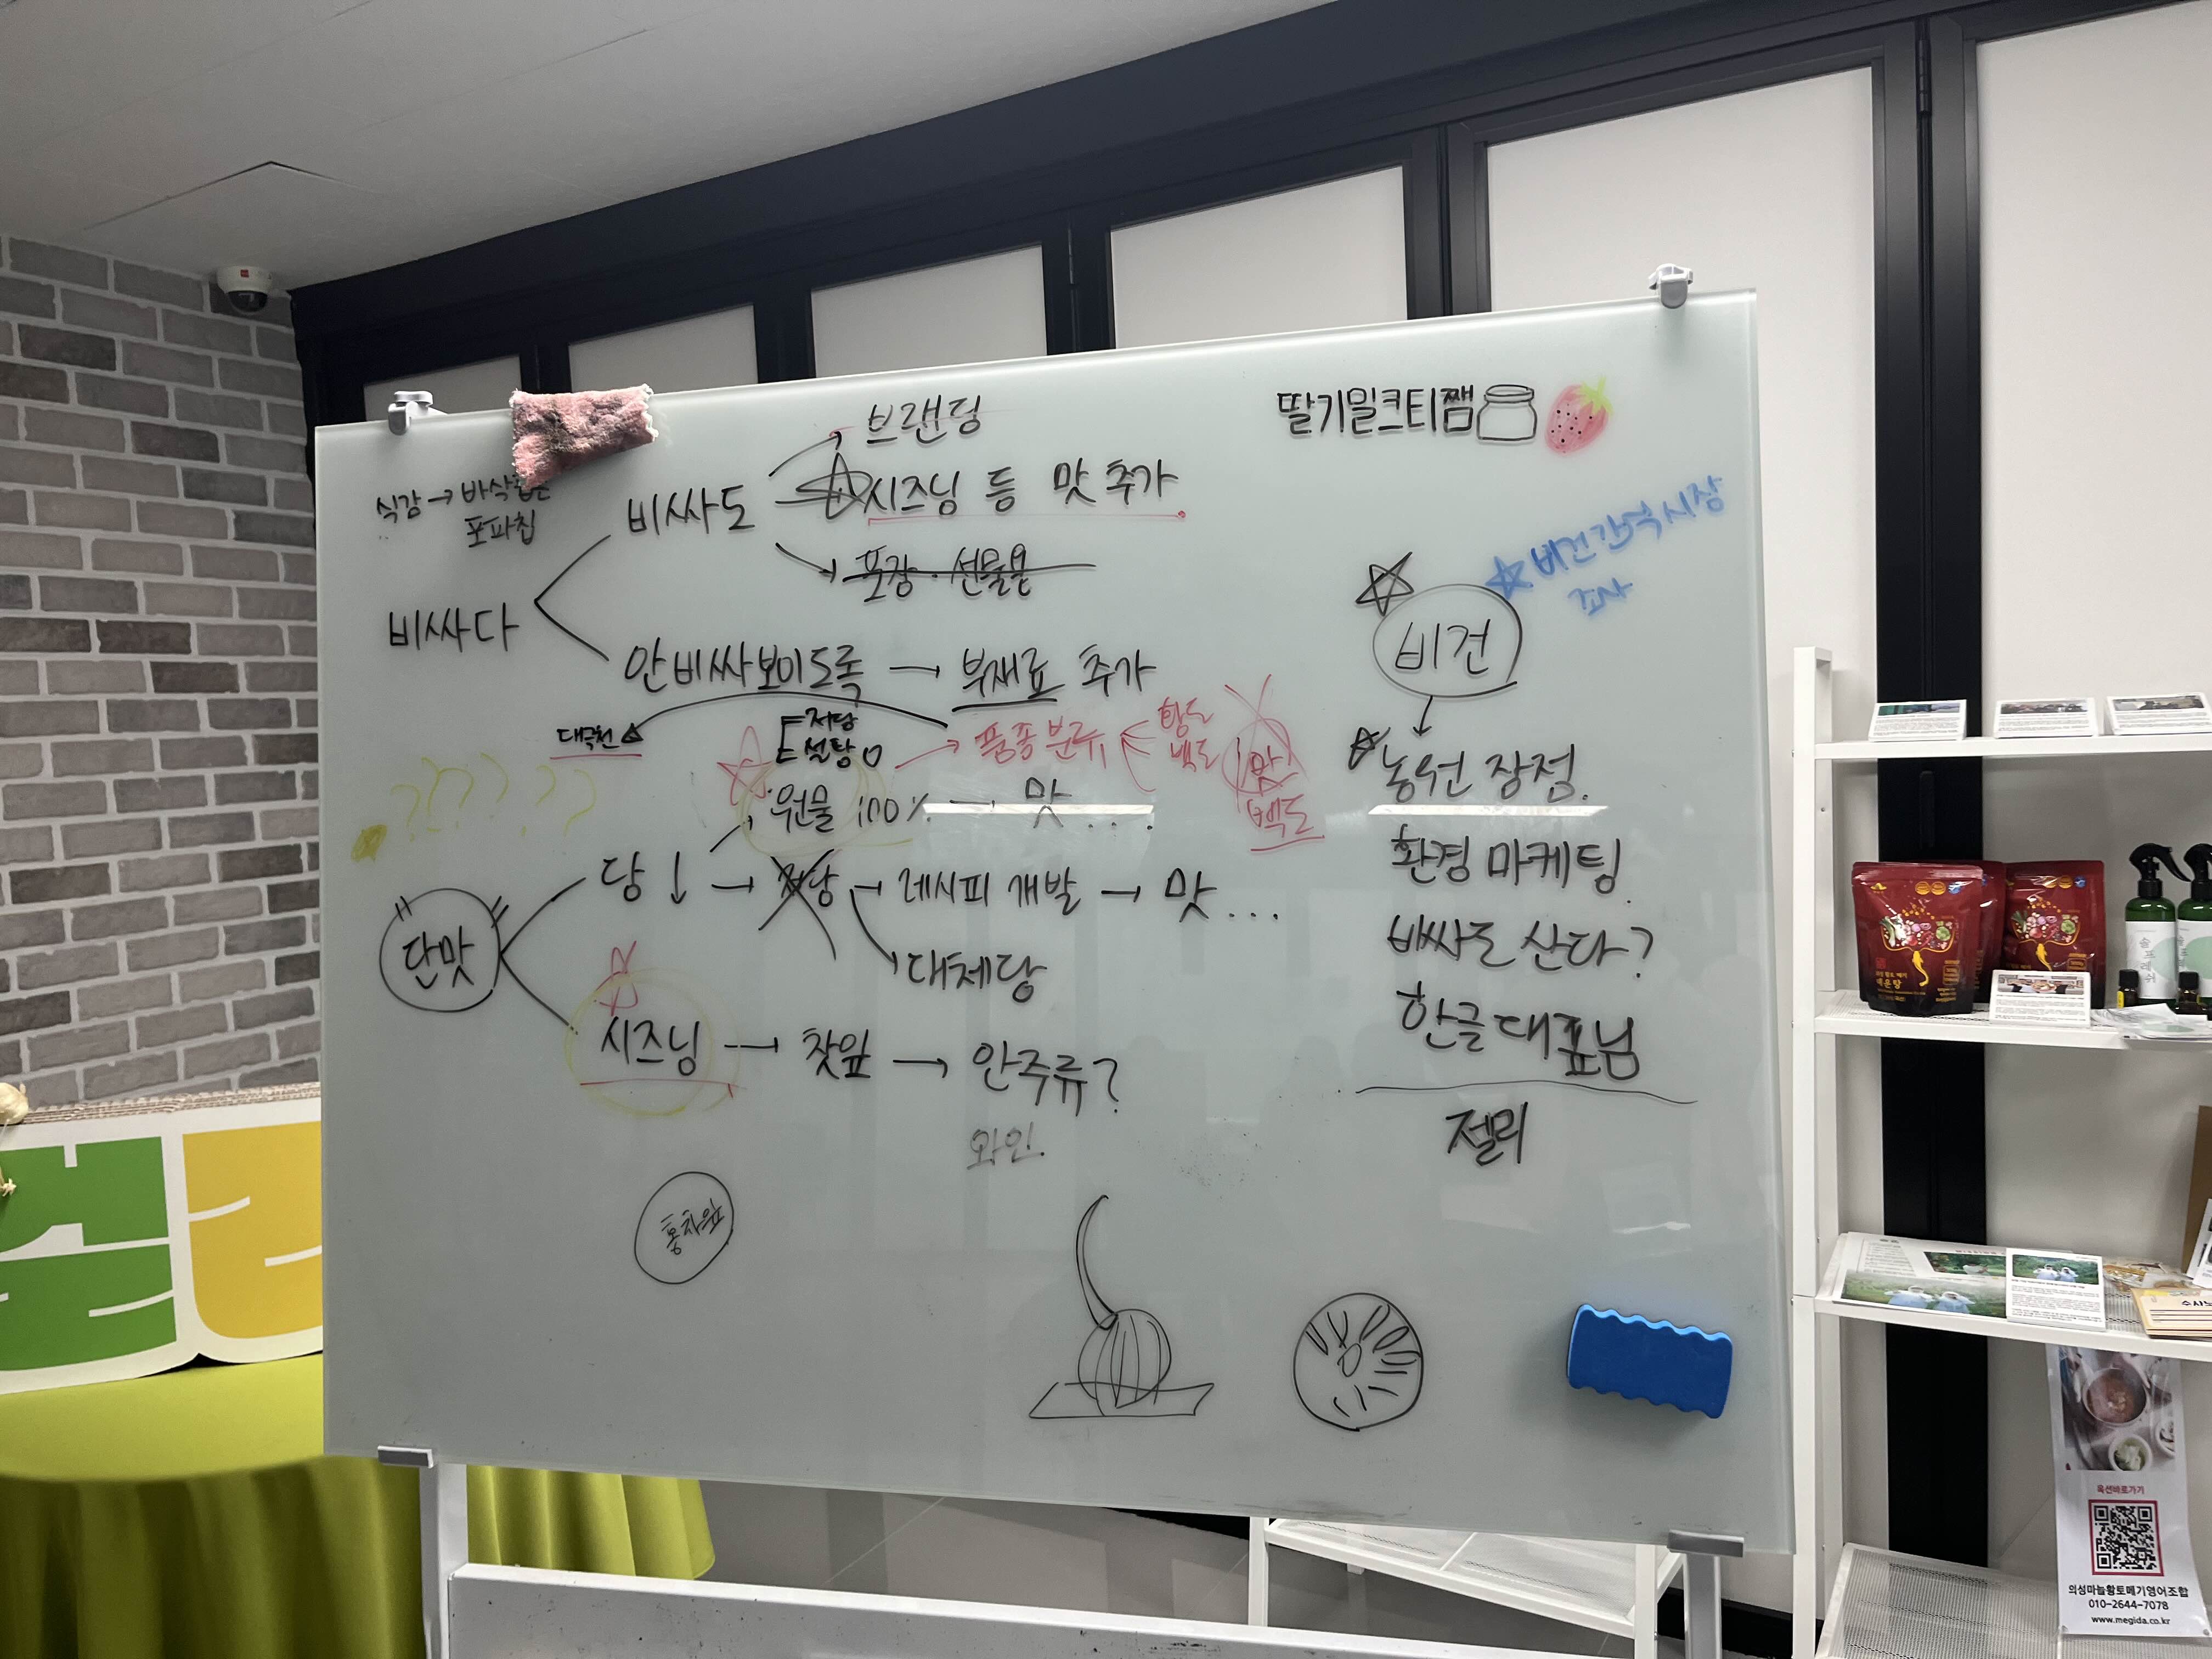 브랜딩
딸기밀크티쨈
식감 → 바삭
포파칩
비싸도
시즈닝 등 맛 추가
포장·선물용
비싸다
안비싸보이도록 → 부재료 추가
비건간식시장
조사
비건
대극천
저당
설탕 O
품종분류
황도
백도
맛!
백도
원물 100% → 맛...
당↓ → 저당 → 레시피 개발 → 맛...
대체당
단맛
시즈닝 → 찻잎 → 안주류?
와인
홍차잎
농원 장점.
환경 마케팅.
비싸도 산다?
한글대표님
젤리
매운탕
솔프레쉬
옥션바로가기
의성마늘황토메기영어조합
010-2644-7078
www.megida.co.kr